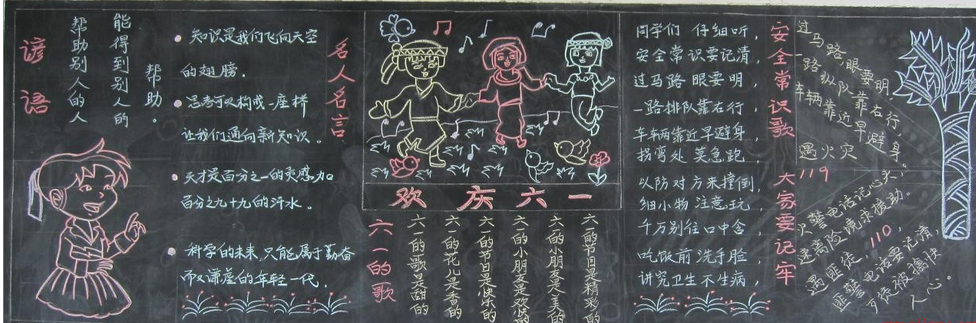 谚语
能得到别人的
帮助。
帮助别人的人
名人名言
知识是我们飞向天空
的翅膀。
思考可以构成一座桥
让我们通向新知识。
天才是百分之一的灵感加
百分之九十九的汗水。
科学的未来只能属于勤奋
而又谦虚的年轻一代。
欢庆六一
六一的歌
六一的节日是精彩的
六一的小朋友是最美的
六一的小朋友是欢愉的
六一的节日是快乐的
六一的花儿是香的
六一的歌声是甜的
同学们 仔细听，
安全常识要记清，
过马路 眼要明，
一路排队靠右行，
车辆靠近早避身，
拐弯处 莫急跑，
以防对方来撞倒，
细小物 注意玩
千万别往口中含，
吃饭前 洗手脸，
讲究卫生不生病，
安全常识歌 大家要记牢
过马路眼要明
一路纵队靠右行，
车辆靠近早避身。
遇火灾
119
火警电话记心头，
逃离险境求援助，
遇匪徒，110，
匪警电话要记清，
歹徒被擒快
人心。